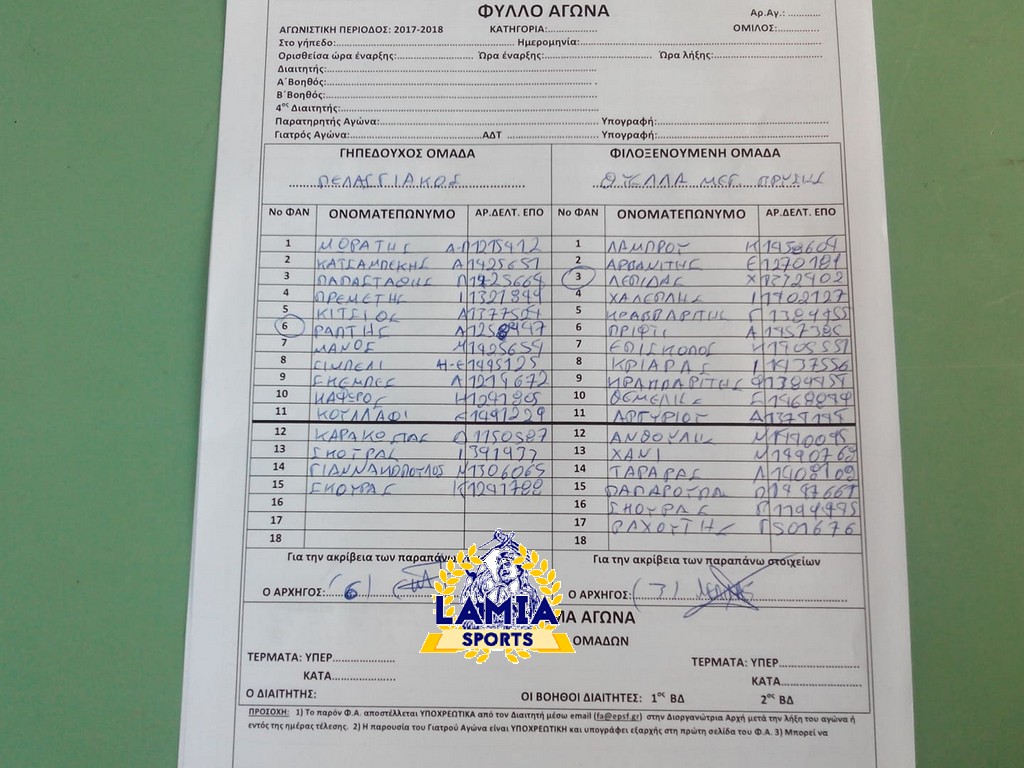 ΦΥΛΛΟ ΑΓΩΝΑ
Αρ.Αγ.: ............
ΑΓΩΝΙΣΤΙΚΗ ΠΕΡΙΟΔΟΣ: 2017-2018 ΚΑΤΗΓΟΡΙΑ:................ ΟΜΙΛΟΣ:..............
Στο γήπεδο:.................... Ημερομηνία:....................
Ορισθείσα ώρα έναρξης:.................... Ώρα έναρξης:.................... Ώρα λήξης:....................
Διαιτητής:....................
Α΄Βοηθός:....................
Β΄Βοηθός:....................
4ος Διαιτητής:....................
Παρατηρητής Αγώνα:.................... Υπογραφή:....................
Γιατρός Αγώνα:....................ΑΔΤ .................... Υπογραφή:....................
ΓΗΠΕΔΟΥΧΟΣ ΟΜΑΔΑ ΦΙΛΟΞΕΝΟΥΜΕΝΗ ΟΜΑΔΑ
ΠΕΛΑΣΓΙΑΚΟΣ ΘΥΕΛΛΑ ΜΕΓ. ΒΡΥΣΗΣ
Νο ΦΑΝ ΟΝΟΜΑΤΕΠΩΝΥΜΟ ΑΡ.ΔΕΛΤ. ΕΠΟ Νο ΦΑΝ ΟΝΟΜΑΤΕΠΩΝΥΜΟ ΑΡ.ΔΕΛΤ. ΕΠΟ
1 ΜΟΡΑΤΗΣ Α-Π 1 ΛΑΜΠΡΟΥ Κ
2 ΚΑΤΣΑΜΠΕΚΗΣ Α 1425651 2 ΑΡΒΑΝΙΤΗΣ Ε 1270181
3 ΠΑΠΑΣΤΑΘΗΣ Π 3 ΛΕΠΙΔΑΣ Χ 1372402
4 ΠΡΕΜΕΤΗΣ Ι 4 ΧΑΛΕΠΛΗΣ Ι 1402127
5 ΚΙΤΣΙΟΣ Α 5 Γ
6 ΡΑΠΤΗΣ Α 6 ΠΡΙΦΤΙ Α 1457385
7 ΜΑΝΟΣ Μ 1425654 7 ΕΠΙΣΚΟΠΟΣ
8 ΓΙΝΠΕΛΙ Η-Ε 1495125 8 ΚΡΙΑΡΑΣ Ι 1437556
9 ΣΚΕΜΠΕΣ Λ 1214672 9
10 ΚΑΦΕΡΟΣ Η 1291805 10 ΘΕΜΕΛΗΣ
11 ΚΟΥΛΛΑΦΙ Ε 1491229 11 ΑΡΓΥΡΙΟΥ Δ
12 ΚΑΡΑΚΩΣΤΑΣ 1150587 12 ΑΝΘΟΥΛΗΣ
13 ΣΚΟΤΡΑΣ Ι 1391937 13 ΧΑΝΙ
14 ΓΙΑΝΝΑΚΟΠΟΥΛΟΣ Ν 1306065 14 ΤΑΡΑΡΑΣ Λ 1408109
15 ΣΚΟΥΡΑΣ Κ 1291788 15 ΠΑΠΑΡΟΥΠΑ Π
16 16 ΣΚΟΥΡΑΣ
17 17 ΡΑΧΟΥΤΗΣ Γ 501676
18 18
Για την ακρίβεια των παραπάνω Για την ακρίβεια των παραπάνω στοιχείων
Ο ΑΡΧΗΓΟΣ: (6) Ο ΑΡΧΗΓΟΣ: (3)
LAMIA
SPORTS
ΜΑ ΑΓΩΝΑ
ΟΜΑΔΩΝ
ΤΕΡΜΑΤΑ: ΥΠΕΡ................ ΤΕΡΜΑΤΑ: ΥΠΕΡ....................
ΚΑΤΑ................ ΚΑΤΑ....................
Ο ΔΙΑΙΤΗΤΗΣ: ΟΙ ΒΟΗΘΟΙ ΔΙΑΙΤΗΤΕΣ: 1ος ΒΔ 2ος ΒΔ
ΠΡΟΣΟΧΗ: 1) Το παρόν Φ.Α. αποστέλλεται ΥΠΟΧΡΕΩΤΙΚΑ από τον Διαιτητή μέσω email (fa@epsf.gr) στην Διοργανώτρια Αρχή μετά την λήξη του αγώνα ή
εντός της ημέρας τέλεσης. 2) Η παρουσία του Γιατρού Αγώνα είναι ΥΠΟΧΡΕΩΤΙΚΗ και υπογράφει εξαρχής στη πρώτη σελίδα του Φ.Α. 3) Μπορεί να